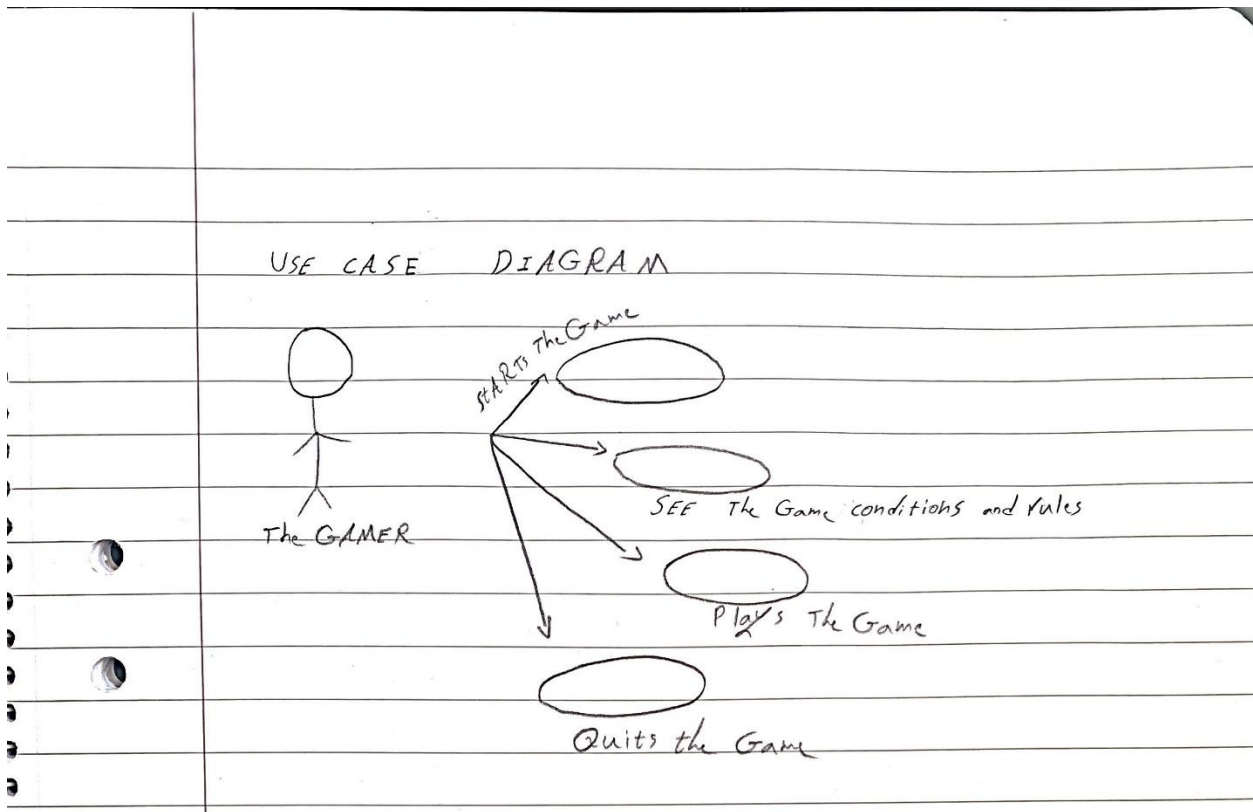 USE CASE DIAGRAM
STARTS The Game
The GAMER
SEE The Game conditions and rules
Plays The Game
Quits the Game